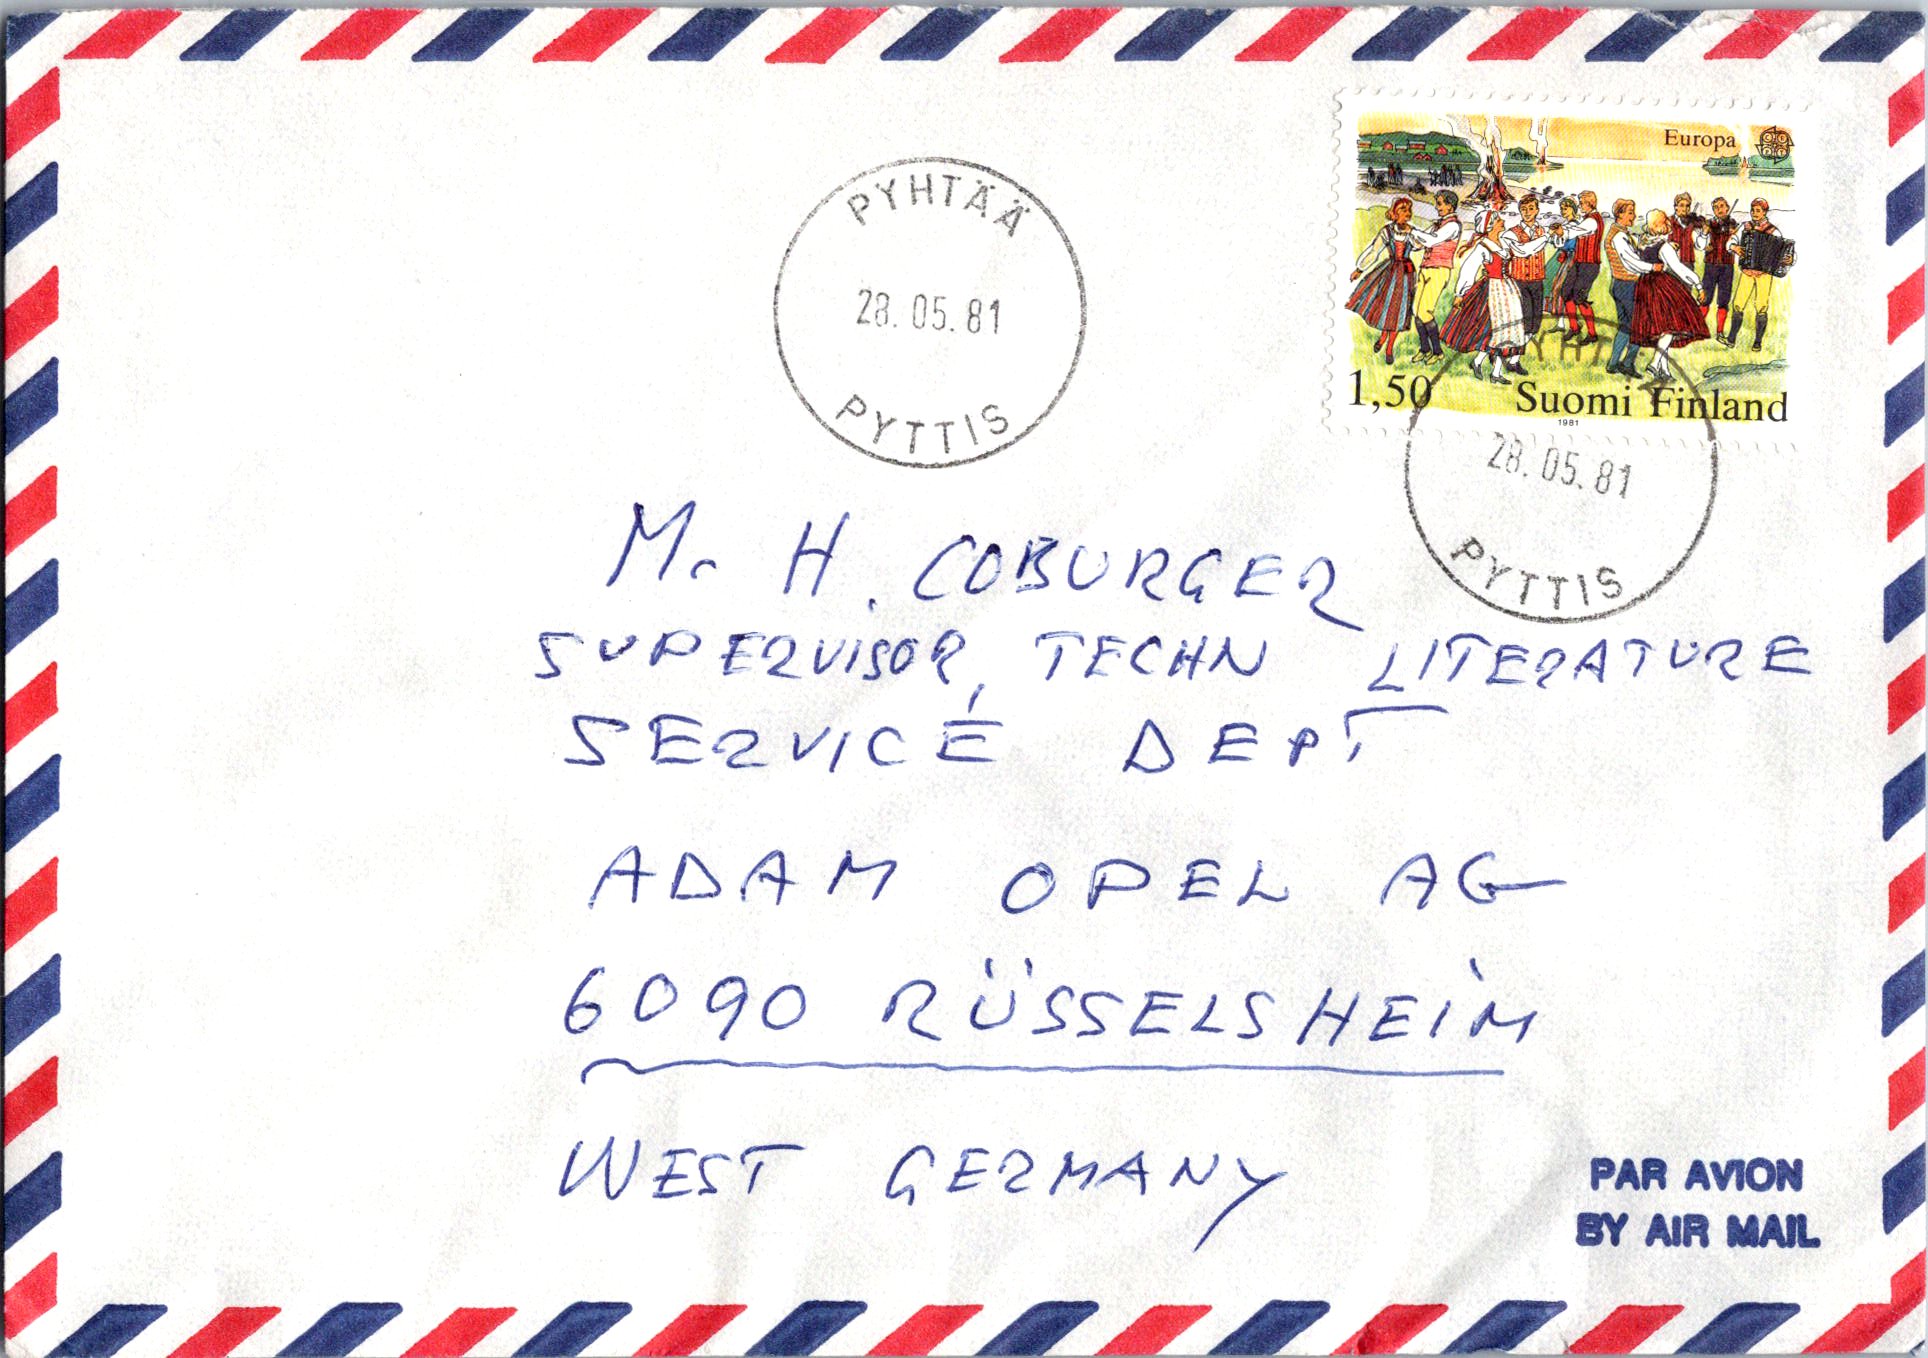 Europa
1,50
Suomi Finland
1981
PYHTÄÄ
28.05.81
PYTTIS
28.05.81
PYTTIS
Mr H. COBURGER
SUPERVISOR, TECHN LITERATURE
SERVICE DEPT
ADAM OPEL AG
6090 RÜSSELSHEIM
WEST GERMANY
PAR AVION
BY AIR MAIL